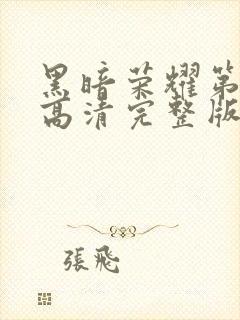 黑暗荣耀第
高清完整版
張飛